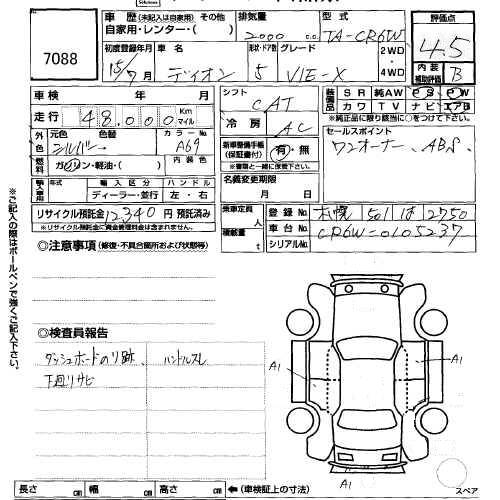 7088
車歴 (未記入は自家用) その他
自家用・レンター・( )
排気量
2000 c.c.
型式
TA-CR6W
評価点
4.5
初度登録年月
15/7月
車名
ディオン
形状・ドア数
5
グレード
VIE-X
2WD
4WD
内装
補助評価
B
車検 年 月
走行 48,000 Km マイル
外色
元色
シルバー
色替
カラー No
A69
燃料
ガソリン・軽油・( )
内装色
輸入車
年式
輸入区分
ディーラー・並行
ハンドル
左・右
リサイクル預託金 12340 円 預託済み
※リサイクル預託金に資金管理料金は含まれません。
シフト
CAT
冷房
AC
新車整備手帳
(保証書付)
有・無
名義変更期限
月 日
乗車定員 人
積載量 t
装備品
SR 純AW PS PW
カワ TV ナビ エアB
※純正品に限り該当に○をつけて下さい。
セールスポイント
ワンオーナー、ABS、
登録No 札幌 501 は 2750
車台No CR6W-0105237
シリアルNo
◎注意事項 (修復・不具合箇所および状態等)
◎検査員報告
ダッシュボードのり跡、 ハンドルスレ
下廻りサビ
A1
A1
A1
スペア
長さ cm 幅 cm 高さ cm ←(車検証上の寸法)
※ご記入の際はボールペンで強くご記入下さい。